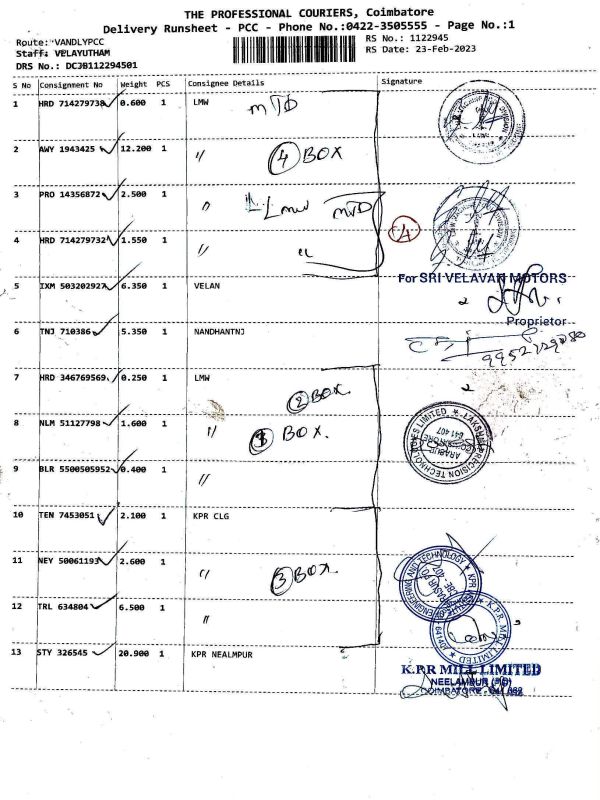 THE PROFESSIONAL COURIERS, Coimbatore
Delivery Runsheet - PCC - Phone No.:0422-3505555 - Page No.:1
Route: VANDLYPCC
RS No.: 1122945
Staff: VELAYUTHAM
RS Date: 23-Feb-2023
DRS No.: DCJB112294501
S No Consignment No Weight PCS Consignee Details Signature
1 HRD 714279738 0.600 1 LMW MTD
2 AWY 1943425 12.200 1 〃 4 BOX
3 PRO 14356872 2.500 1 〃 Lmw MTD
4
4 HRD 714279732 1.550 1 〃 〃
For SRI VELAVAN MOTORS
5 IXM 503202927 6.350 1 VELAN
Proprietor
6 TNJ 710386 5.350 1 NANDHANTNJ
9952729080
7 HRD 346769569 0.250 1 LMW
2 BOX
8 NLM 51127798 1.600 1 〃 BOX.
LAKSHMI PRECISION TECHNOLOGIES LIMITED
ARASUR
COIMBATORE
641 407
9 BLR 5500505952 0.400 1 〃
10 TEN 7453051 2.100 1 KPR CLG
11 NEY 50061193 2.600 1 〃 3 BOX
12 TRL 634804 6.500 1 〃
13 STY 326545 20.900 1 KPR NEALMPUR
K.P.R MILL LIMITED
NEELAMBUR (PO)
COIMBATORE - 641 062